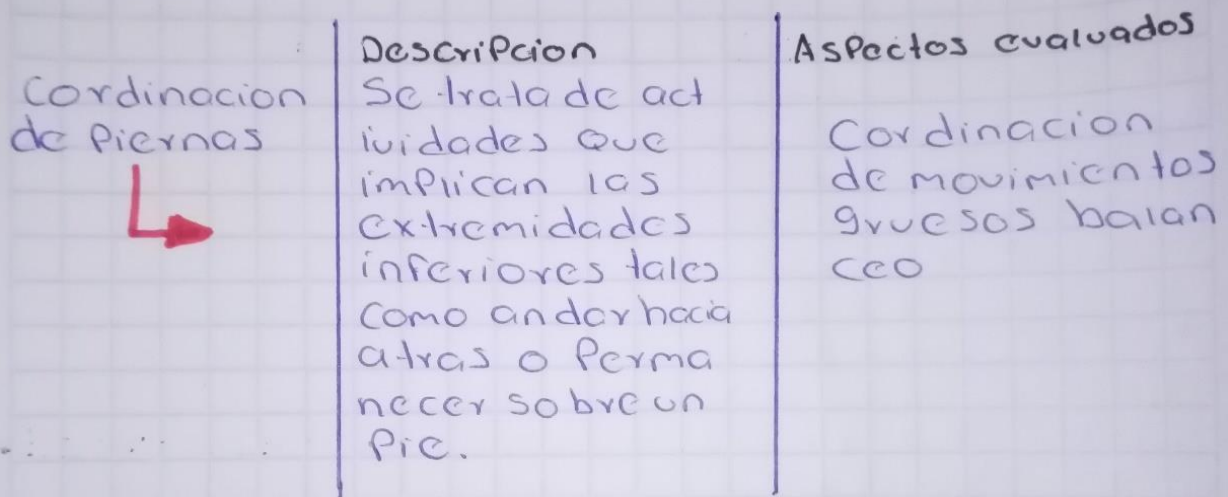 Cordinacion
de Piernas
Descripcion
Se trata de act
ividades que
implican las
extremidades
inferiores tales
como andar hacia
atras o Perma
necer sobre un
Pie.
Aspectos evaluados
Cordinacion
de movimientos
gruesos balan
ceo